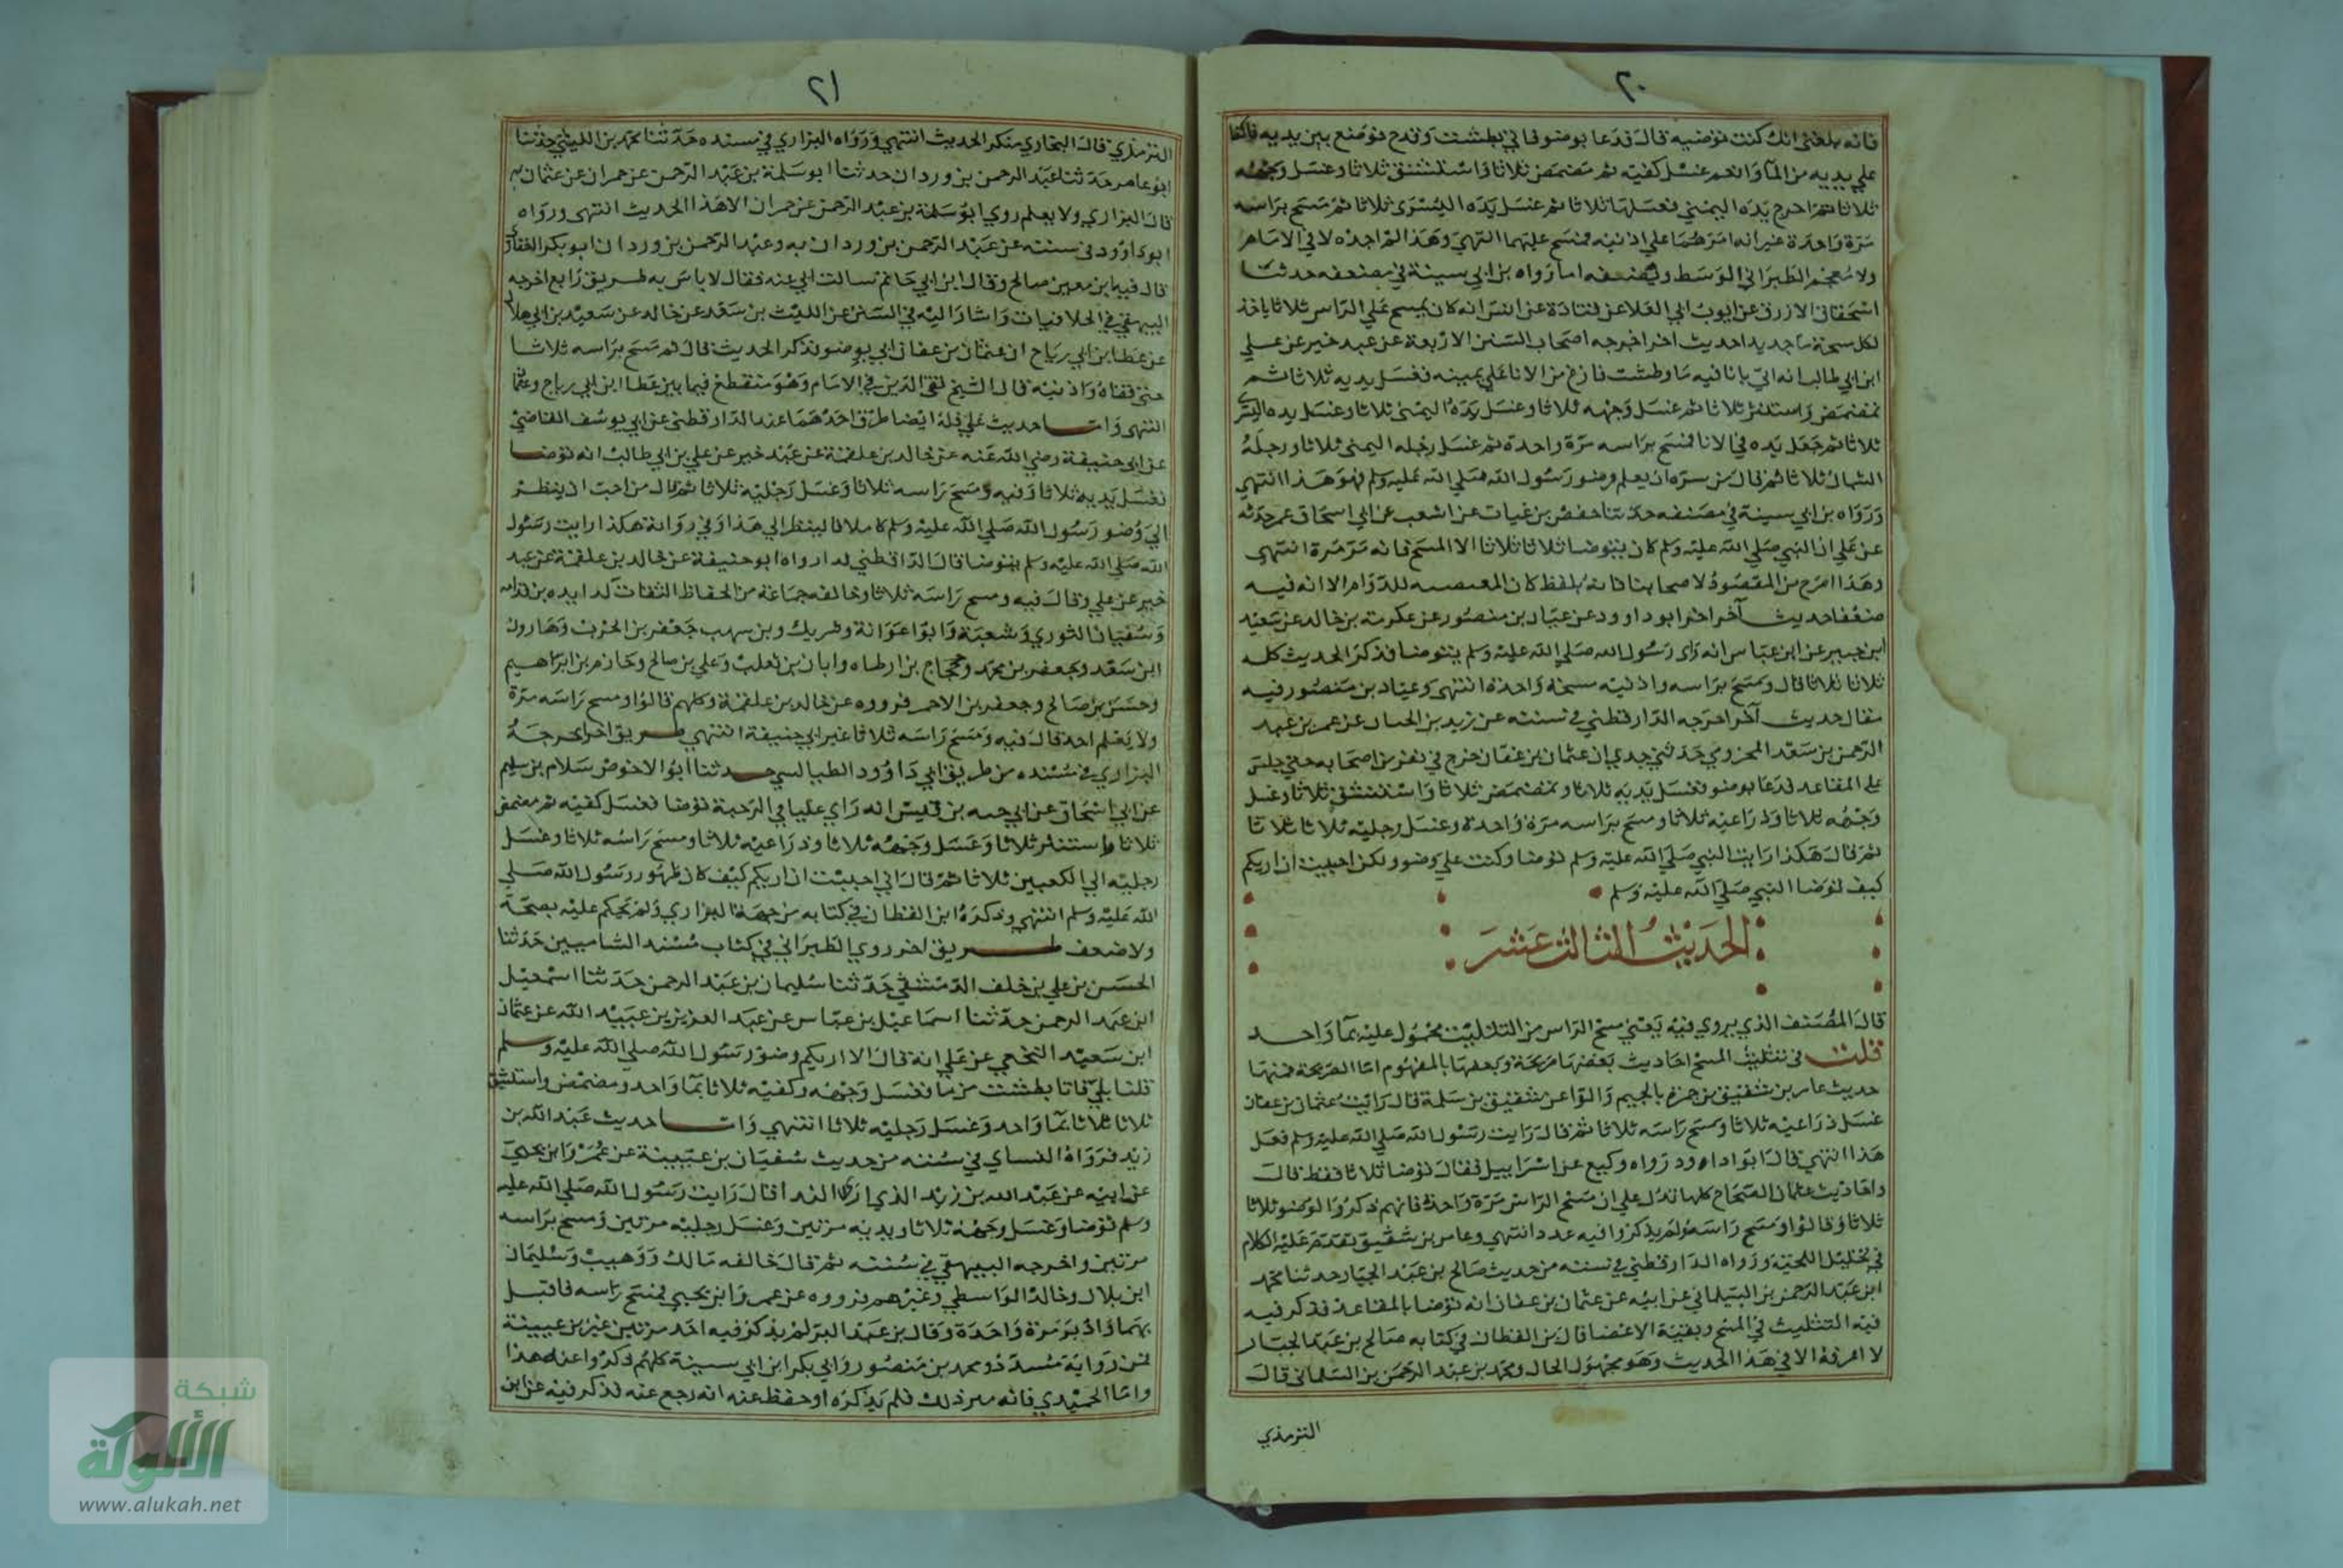 ٢٠
فانه بلغني انك كنت توضيه قال فدعا بوضو فاتي بطشت وقدح فوضع بين يديه فاكفا
علي يديه من المآ وانعم غسل كفيه ثم تمضمض ثلاثا واستنشق ثلاثا وغسل وجهه
ثلاثا ثم اخرج يده اليمني فغسلها ثلاثا ثم غسل يده اليسري ثلاثا ثم مسح براسه
مرة واحدة غير انه امرهما علي اذنيه فمسح عليهما انتهي وهذا لم اجده لا في الامام
ولا معجم الطبراني الوسط وليضعفه اما رواه بن ابي سيبة في مصنفه حدثنا
اسحق الازرق عن ايوب ابي العلا عن قتادة عن انس انه كان يمسح علي الراس ثلاثا ياخذ
لكل مسحة ما جديدا حديث اخر اخرجه اصحاب السنن الاربعة عن عبد خير عن علي
ابن ابي طالب انه اتي بانا فيه ما وطشت فازغ من الانا علي يمينه فغسل يديه ثلاثا ثم
تمضمض واستنثر ثلاثا ثم غسل وجهه ثلاثا وغسل يده اليمنى ثلاثا وغسل يده اليسري
ثلاثا ثم جعل يده في الانا فمسح براسه مرة واحدة ثم غسل رجله اليمني ثلاثا ورجله
الشمال ثلاثا ثم قال من سره ان يعلم وضو رسول الله صلي الله عليه وسلم فهو هذا انتهي
ورواه بن ابي سيبة في مصنفه حدثنا حفص بن غياث عن اشعب عن ابي اسحاق عمن حدثه
عن علي ان النبي صلي الله عليه وسلم كان يتوضا ثلاثا ثلاثا الا المسح فانه مرة مرة انتهي
وهذا اصرح من المقصود لاصحابنا فانه بلفظ كان المقتضيه للدوام الا انه فيه
ضعفا حديث آخر اخر ابو داوود عن عباد بن منصور عن عكرمة بن خالد عن سعيد
ابن جبير عن ابن عباس انه راي رسول الله صلي الله عليه وسلم يتوضا فذكر الحديث كله
ثلاثا ثلاثا قال ومسح براسه واذنيه مسحة واحدة انتهي وعباد بن منصور فيه
مقال حديث آخر اخرجه الدارقطني في سننه عن زيد بن الحباب عن عمر بن عبد
الرحمن بن سعد المخزومي حدثني جدي ان عثمان بن عفان خرج في نفر من اصحابه حتي جلس
علي المقاعد فدعا بوضو فغسل يديه ثلاثا وتمضمض ثلاثا واستنشق ثلاثا وغسل
وجهه ثلاثا وذراعيه ثلاثا ومسح براسه مرة واحدة وغسل رجليه ثلاثا ثلاثا
ثم قال هكذا رايت النبي صلي الله عليه وسلم توضا وكنت علي وضو ولكن احببت ان اريكم
كيف توضا النبي صلي الله عليه وسلم
الحديث الثالث عشر
قال المصنف الذي يروي فيه يعني مسح الراس من التثليث محمول عليه بمآ واحد
قلت في تثليث المسح احاديث بعضها صريحة وبعضها بالمفهوم اما الصريحة فمنها
حديث عامر بن شقيق بن جمرة بالجيم والرا عن شقيق بن سلمة قال رايت عثمان بن عفان
غسل ذراعيه ثلاثا ومسح راسه ثلاثا ثم قال رايت رسول الله صلي الله عليه وسلم فعل
هذا انتهي قال ابو داوود رواه وكيع عن اسراييل فقال توضا ثلاثا فقط قال
واحاديث عثمان الصحاح كلها تدل علي ان مسح الراس مرة واحدة فانهم ذكروا الوضو ثلاثا
ثلاثا وقالوا ومسح راسه ولم يذكروا فيه عددا انتهي وعامر بن شقيق تقدم عليه الكلام
في تخليل اللحية ورواه الدارقطني في سننه من حديث صالح بن عبد الجبار حدثنا محمد
ابن عبد الرحمن بن البيلماني عن ابيه عن عثمان بن عفان انه توضا بالمقاعد فذكر فيه
فيه التثليث في المسح وبقية الاعضا قال بن القطان في كتابه صالح بن عبد الجبار
لا اعرفه الا في هذا الحديث وهو مجهول الحال ومحمد بن عبد الرحمن بن السلماني قال
الترمذي
٢١
الترمذي قال البخاري منكر الحديث انتهي ورواه البزاري في مسنده حدثنا محمد بن الليثي حدثنا
ابو عامر حدثنا عبد الرحمن بن وردان حدثنا ابو سلمة بن عبد الرحمن عن حمران عن عثمان به
قال البزاري ولا يعلم روي ابو سلمة بن عبد الرحمن عن حمران الا هذا الحديث انتهي ورواه
ابو داوود في سننه عن عبد الرحمن بن وردان به وعبد الرحمن بن وردان ابو بكر الغفاري
قال فيه ابن معين صالح وقال ابن ابي حاتم سالت ابي عنه فقال لا باس به طريق رابع اخرجه
البيهقي في الخلافيات واشار اليه في السنن عن الليث بن سعد عن خالد عن سعيد بن ابي هلال
عن عطا بن ابي رباح ان عثمان بن عفان اتي بوضو فذكر الحديث قال ثم مسح براسه ثلاثا
حتى قفاه واذنيه قال الشيخ تقي الدين في الامام وهو منقطع فيما بين عطا ابن ابي رباح وعثمان
انتهي واما حديث علي فله ايضا طرق احدهما عند الدارقطني عن ابي يوسف القاضي
عن ابي حنيفة رضي الله عنه عن خالد بن علقمة عن عبد خير عن علي بن ابي طالب انه توضا
فغسل يديه ثلاثا وفيه ومسح راسه ثلاثا وغسل رجليه ثلاثا ثم قال من احب ان ينظر
الي وضو رسول الله صلي الله عليه وسلم كاملا فالينظر الي هذا وفي رواية هكذا رايت رسول
الله صلي الله عليه وسلم يتوضا قال الدارقطني لدا رواه ابو حنيفة عن خالد بن علقمة عن عبد
خير عن علي وقال فيه ومسح راسه ثلاثا وخالفه جماعة من الحفاظ الثقات كدا يده بن قدامه
وسفيان الثوري وشعبة وابوا عوانة وشريك وبن سهب جعفر بن الحرث وهارون
ابن سعد وجعفر بن محمد وحجاج بن ارطاه وابان بن تغلب وعلي بن صالح وحازم بن ابراهيم
وحسن بن صالح وجعفر بن الاحمر فرووه عن خالد بن علقمة وكلهم قالوا ومسح راسه مرة
ولا يعلم احد قال فيه ومسح راسه ثلاثا غير ابي حنيفة انتهي طريق اخر اخرجه
البزاري في مسنده من طريق ابي داوود الطيالسي حدثنا ابو الاحوص سلام بن سليم
عن ابي اسحاق عن ابي حيه بن قيس انه راي عليا في الرحبة توضا فغسل كفيه ثم مضمض
ثلاثا واستنثر ثلاثا وغسل وجهه ثلاثا وذراعيه ثلاثا ومسح راسه ثلاثا وغسل
رجليه الي الكعبين ثلاثا ثم قال اني احببت ان اريكم كيف كان طهور رسول الله صلي
الله عليه وسلم انتهي وذكره ابن القطان في كتابه من جهة البزاري ولم يحكم عليه بصحة
ولا ضعف طريق اخر روي الطبراني في كتاب مسند الشاميين حدثنا
الحسن بن علي بن خلف الدمشقي حدثنا سليمان بن عبد الرحمن حدثنا اسمعيل
ابن عبد الرحمن حدثنا اسماعيل بن عباس عن عبد العزيز بن عبيد الله عن عثمان
ابن سعيد النخعي عن علي انه قال الا اريكم وضو رسول الله صلي الله عليه وسلم
قلنا بلي فاتا بطشت من ما فغسل وجهه وكفيه ثلاثا بمآ واحد ومضمض واستنشق
ثلاثا ثلاثا بمآ واحد وغسل رجليه ثلاثا انتهي واما حديث عبد الله بن
زيد فرواه النساي في سننه من حديث سفيان بن عيينة عن عمر وابن يحيي
عن ابيه عن عبد الله بن زيد الذي اري الندا قال رايت رسول الله صلي الله عليه
وسلم توضا وغسل وجهه ثلاثا ويديه مرتين وغسل رجليه مرتين ومسح براسه
مرتين واخرجه البيهقي في سننه ثم قال خالفه مالك ووهيب وسليمان
ابن بلال وخالد الواسطي وغيرهم فرووه عن عمر وابن يحيي فمسح راسه فاقبل
بهما وادبر مرة واحدة وقال بن عبد البر لم يذكر فيه احد مرتين غير بن عيينة
فمن رواية مسدد ومحمد بن منصور وابي بكر ابن ابي سيبة كلهم ذكروا عنه هذا
واما الحميدي فانه ميز ذلك فلم يذكره او حفظ عنه انه رجع عنه فذكر فيه عن ابن
شبكة
الألوكة
www.alukah.net